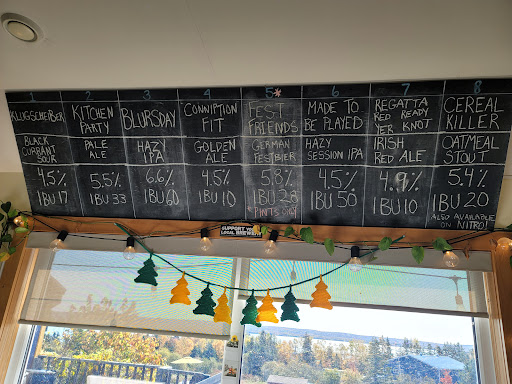 1
KLUGSCHEIßER
BLACK
CURRANT
SOUR
4.5%
IBU 17
2
KITCHEN
PARTY
PALE
ALE
5.5%
IBU 33
3
BLURSDAY
HAZY
IPA
6.6%
IBU 60
4
CONNIPTION
FIT
GOLDEN
ALE
4.5%
IBU 10
5*
FEST
FRIENDS
GERMAN
FESTBIER
5.8%
IBU 28
6
MADE TO
BE PLAYED
HAZY
SESSION IPA
4.5%
IBU 50
7
REGATTA
RED READY
IER KNOT
IRISH
RED ALE
4.9%
IBU 10
8
CEREAL
KILLER
OATMEAL
STOUT
5.4%
IBU 20
ALSO AVAILABLE
ON NITRO!
SUPPORT YOUR
LOCAL BREWERY